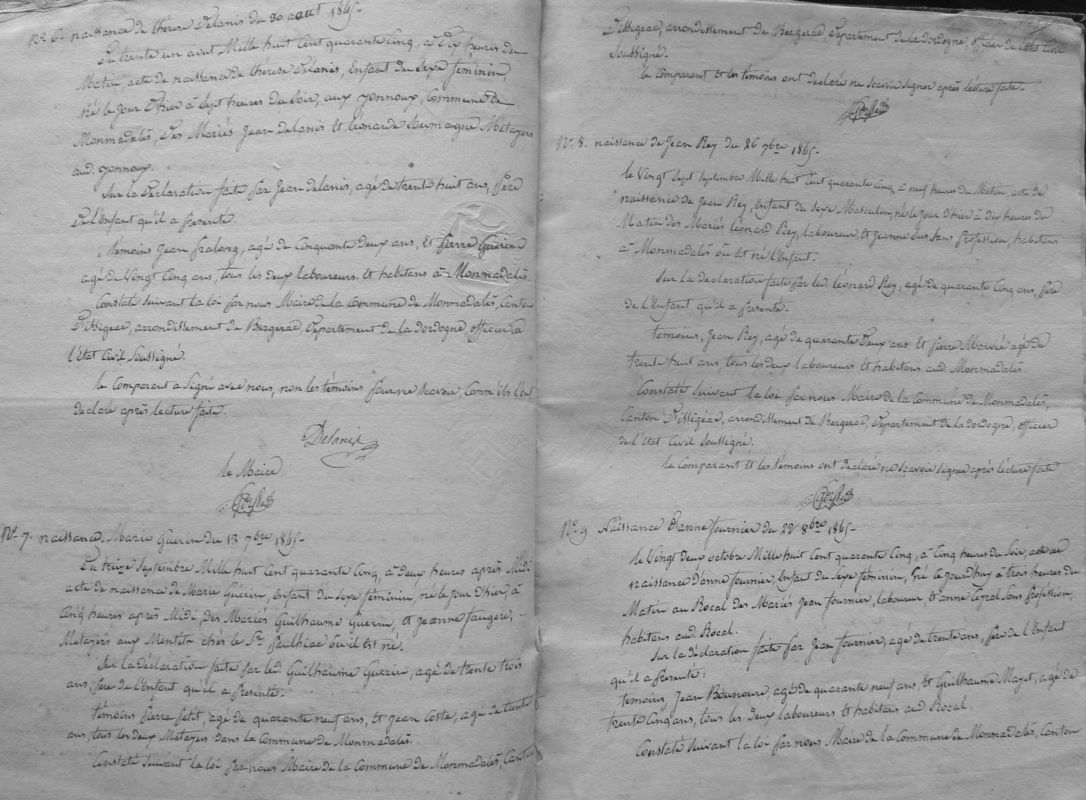 No. 6. naissance de thérèse Delanis du 30 aout 1845.
Du trente un aout Mille huit Cent quarante Cinq, à Dix heures du
Matin, acte de naissance de thérèse Delanis, Enfant du Sexe féminin,
Né le jour D'hier à Sept heures du Soir, aux yonnoux, Commune de
Monmadalès, Des Mariés Jean Delanis et Léonarde Métayers
aud. yonnoux.
Sur la Déclaration faite par Jean Delanis, agé de trente huit ans, père
De l'Enfant qu'il a présenté.
témoins Jean fralong, agé de Cinquante Deux ans, Et pierre Guérin
agé de Vingt Cinq ans, tous les deux laboureurs et habitans à Monmadalès.
Constaté Suivant la loi par nous Maire de la Commune de Monmadalès, Canton
D'issigeac, arrondissement de Bergerac, Département de la dordogne, officier de
l'État Civil Soussigné.
le Comparant a Signé avec nous, non les témoins pour ne Scavoir, Comm'ils l'ont
déclaré après lecture faite.
Delanis
le Maire
No. 7. naissance Marie Guérin du 12 7bre 1845.
Du treize Septembre Mille huit Cent quarante Cinq, à Deux heures après Midi
acte de naissance de Marie Guerin, Enfant du Sexe féminin, né le jour d'hier, à
Cinq heures après Midi, des Mariés Guilhaume Guerin, et Jeanne faugère,
Métayers aux Montet chès le Sr. faulhiac où il est né.
Sur la déclaration faite par led. Guilhaume Guerin, agé de trente trois
ans, père de l'Enfant qu'il a présenté.
témoins pierre petit, agé de quarante neuf ans, Et Jean Coste, agé de trente
ans, tous les deux Métayers dans la Commune de Monmadalès.
Constaté Suivant la loi par nous Maire de la Commune de Monmadalès, Canton
D'issigeac, arrondissement de Bergerac Département de la dordogne, officier de l'état Civil
Soussigné.
le Comparant et les témoins ont déclaré ne Scavoir Signer après lecture faite.
No. 8. naissance de Jean Rey du 26 7bre 1845.
le Vingt Sept Septembre Mille huit Cent quarante Cinq, à neuf heures du Matin, acte de
naissance de Jean Rey, Enfant du Sexe Masculin, né le jour d'hier à dix heures du
Matin des Mariés Léonard Rey, laboureur, et Jeanne Sans profession, habitans
à Monmadalès où Est né l'Enfant.
Sur la déclaration faite par led. Léonard Rey, agé de quarante Cinq ans, père
de l'Enfant qu'il a présenté.
témoins, Jean Rey, agé de quarante Deux ans Et pierre agé de
trente huit ans, tous les deux laboureurs et habitans aud. Monmadalès.
Constaté Suivant la loi par nous Maire de la Commune de Monmadalès,
Canton D'issigéac, arrondissement de Bergerac, Département de la dordogne, officier
de l'État Civil Soussigné.
le Comparant Et les témoins ont déclaré ne Scavoir Signer après lecture faite
No. 9 Naissance D'anne fournier du 22 8bre 1845.
le Vingt deux octobre Mille huit Cent quarante Cinq, à Cinq heures du Soir, acte de
naissance d'anne fournier, Enfant du Sexe féminin, Né le jourd'huy à trois heures du
Matin au Rocal des Mariés Jean fournier, laboureur, et anne Sans profession,
habitans aud. Rocal.
Sur la déclaration faite par Jean fournier, agé de trente ans, père de l'Enfant
qu'il a présenté:
témoins, Jean Bounoure, agé de quarante neuf ans, Et Guilhaume Mazet, agé de
trente Cinq ans, tous les deux laboureurs et habitans aud. Rocal.
Constaté Suivant la loi par nous Maire de la Commune de Monmadalès, Canton